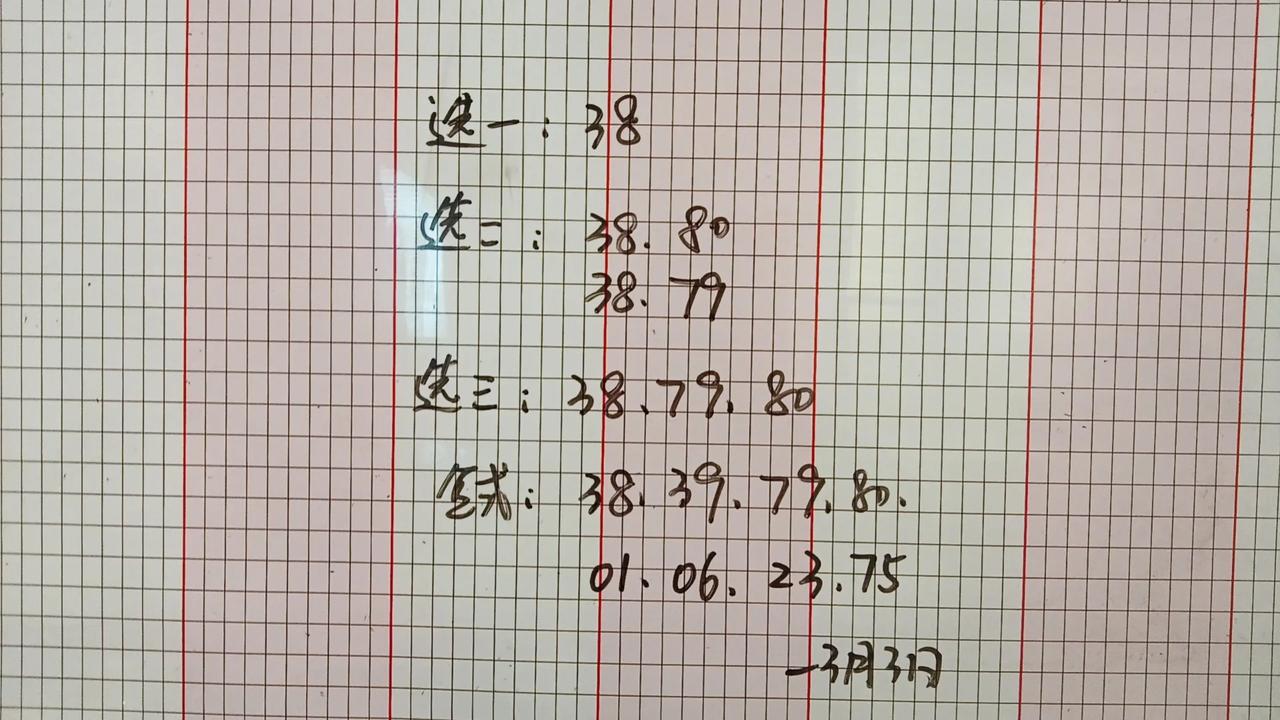 选一：38
选二：38. 80
38. 79
选三：38、79. 80
复式：38. 39. 79. 80.
01. 06. 23. 75
—3月3日